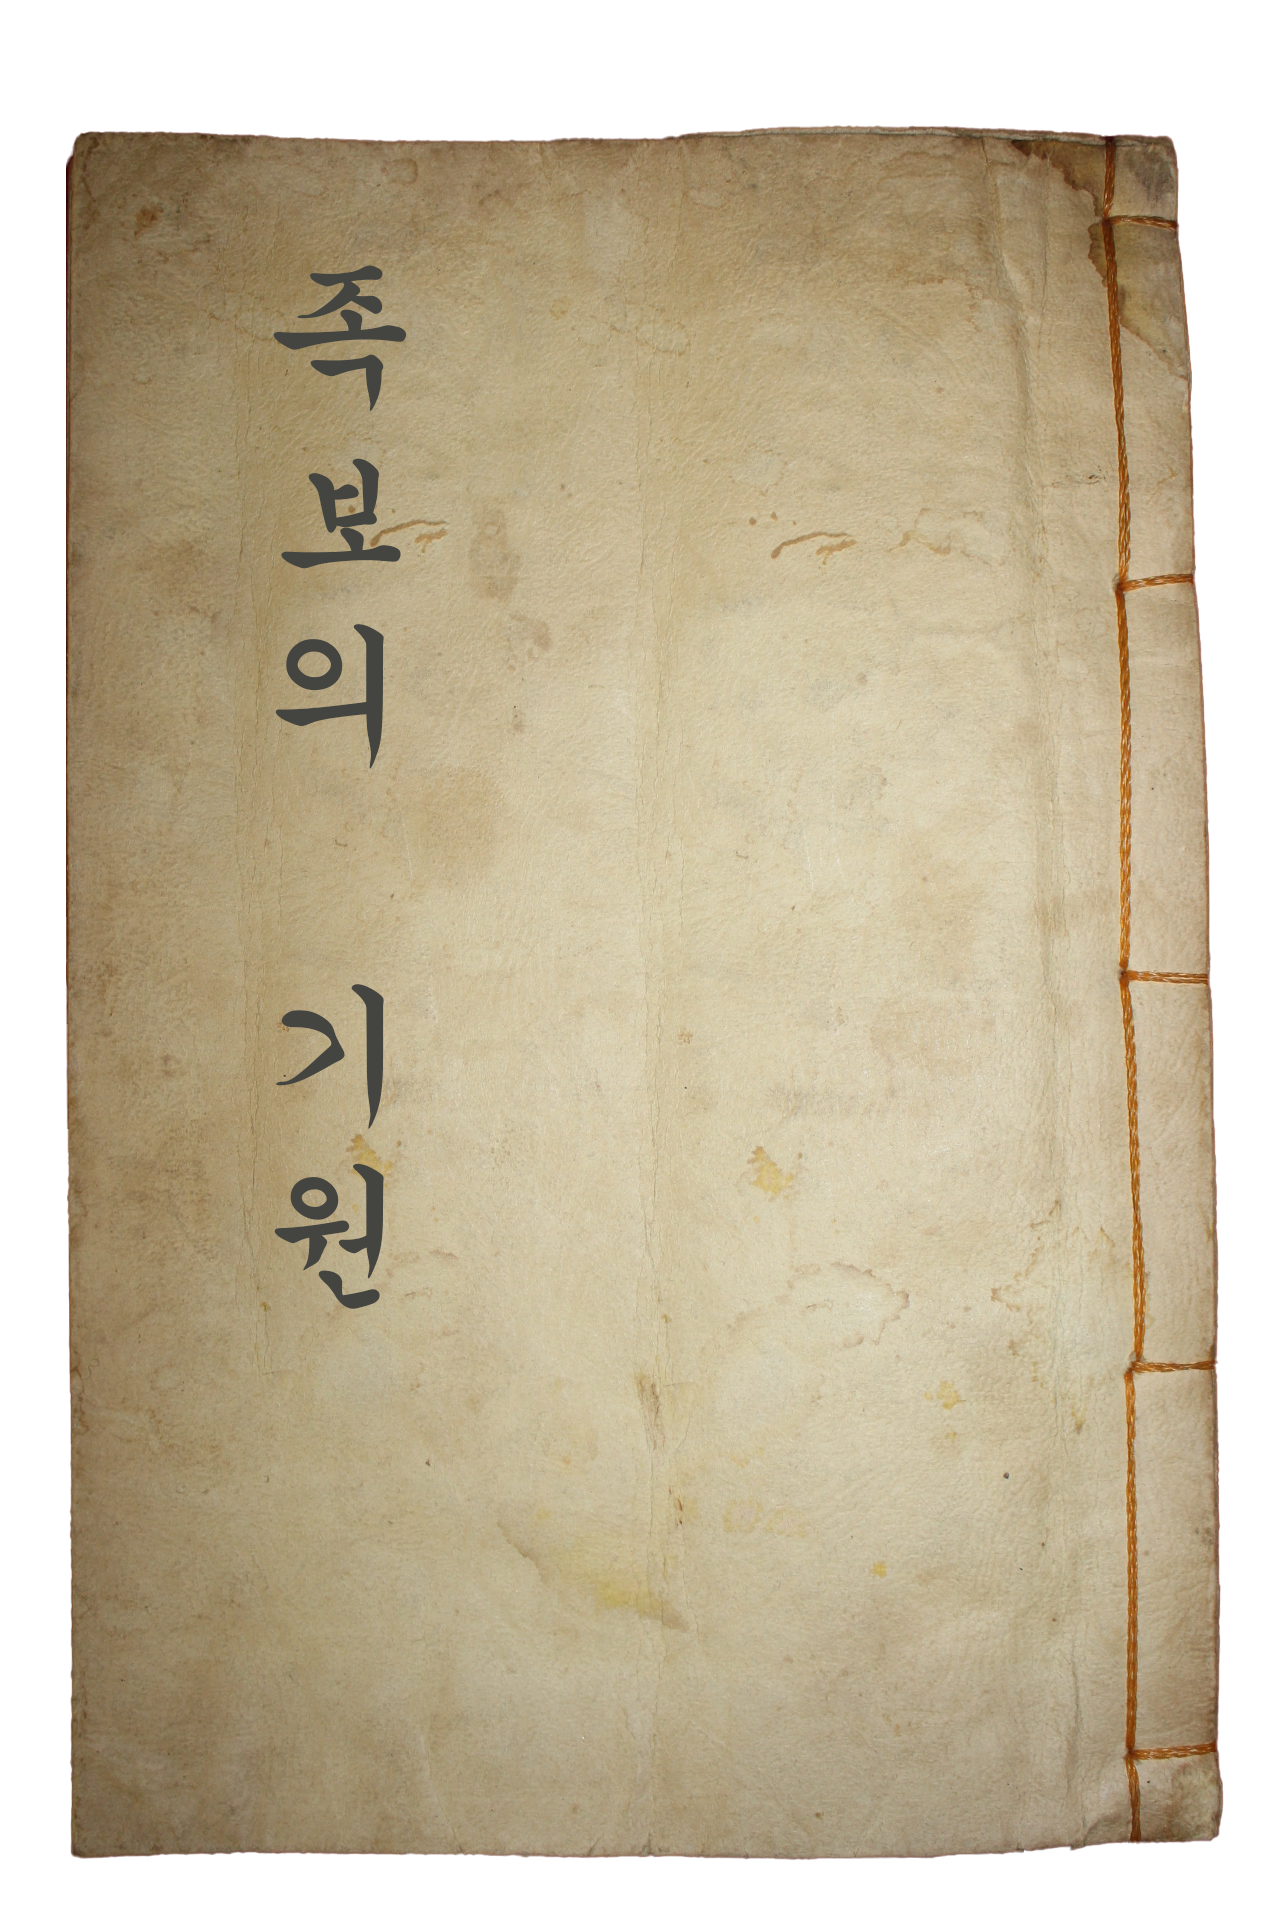 족보의 기원